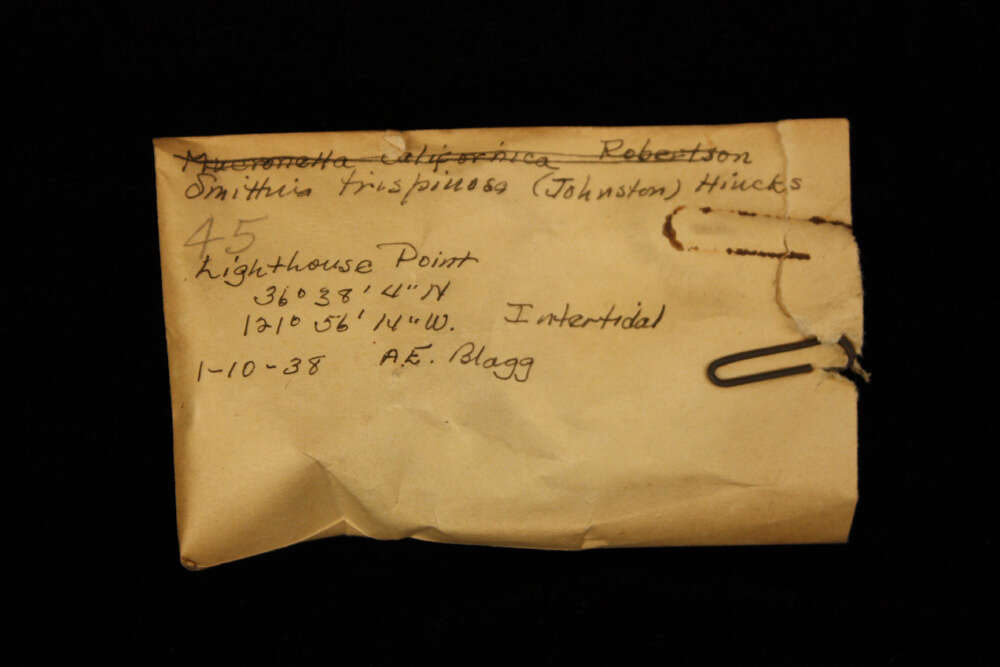 Mucronella Californica Robertson
Smittia trispinosa (Johnston) Hincks
45
Lighthouse Point
36° 38' 4" N
121° 56' 14" W. Intertidal
1-10-38 A.E. Blagg